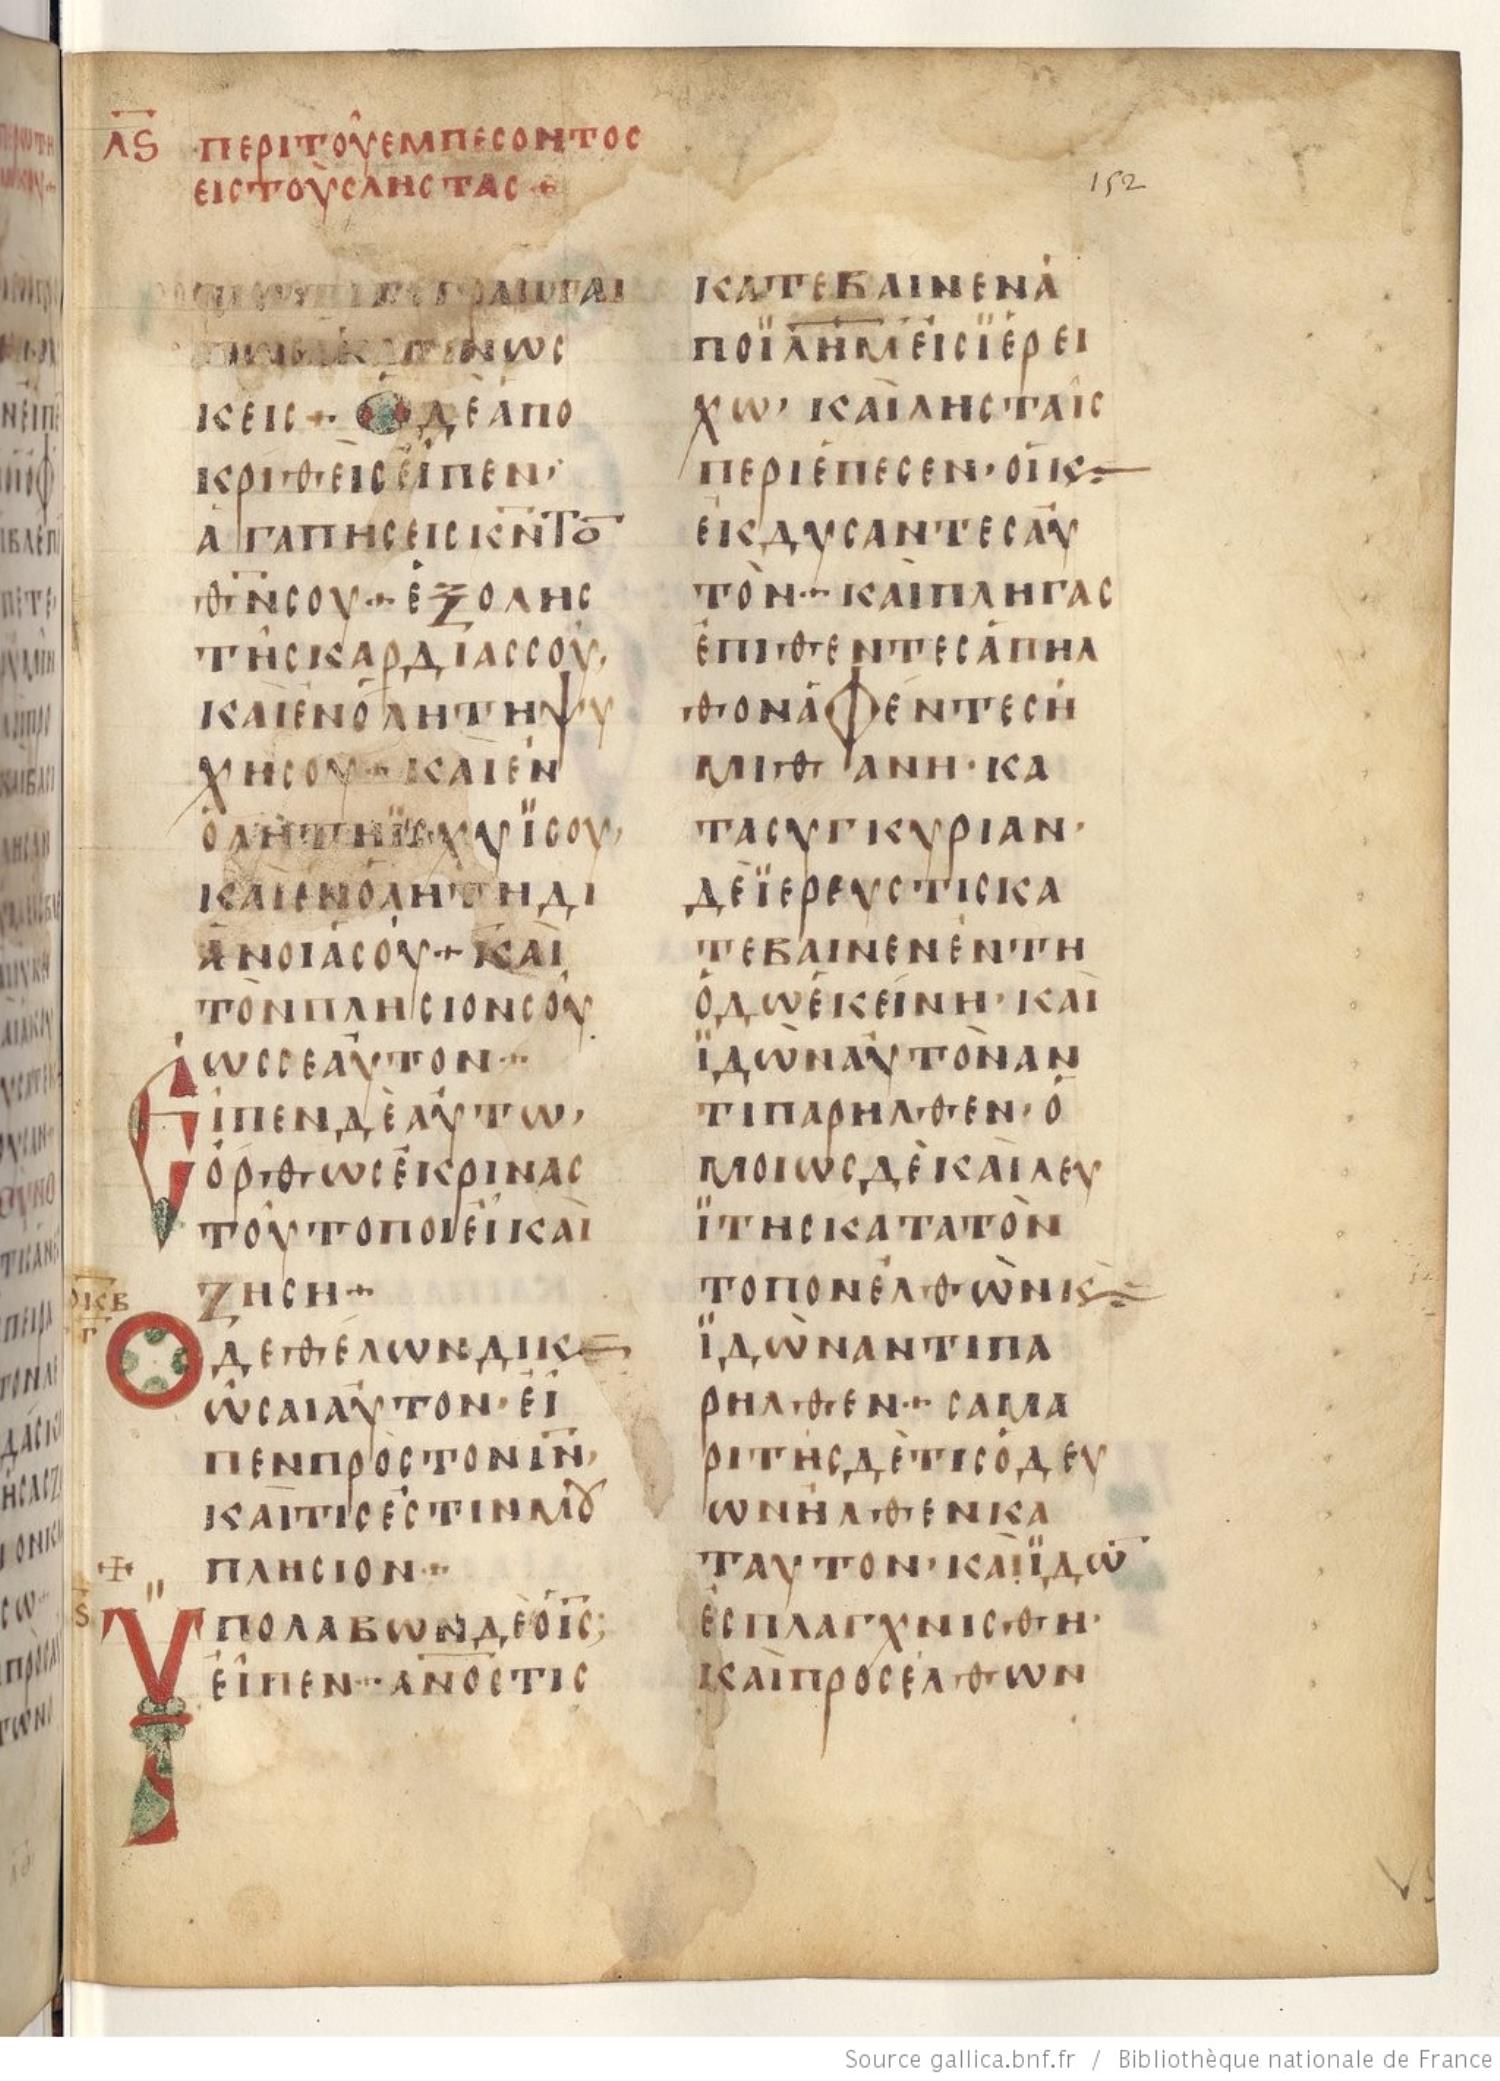 ΛϚ ΠΕΡΙΤΟΥΕΜΠΕΣΟΝΤΟΣ
ΕΙΣΤΟΥΣΛΗΣΤΑΣ+
152
ΓΕΓΡΑΠΤΑΙ
ΠΩΣ
ΚΕΙΣ+ ΟΔΕΑΠΟ
ΚΡΙΘΕΙΣΕΙΠΕΝ,
ΑΓΑΠΗΣΕΙΣΚΝΤΟ
ΘΝΣΟΥ+ΕΞΟΛΗΣ
ΤΗΣΚΑΡΔΙΑΣΣΟΥ,
ΚΑΙΕΝΟΛΗΤΗΨΥ
ΧΗΣΟΥ+ΚΑΙΕΝ
ΟΛΗΤΗΪΣΧΥΪΣΟΥ,
ΚΑΙΕΝΟΛΗΤΗΔΙ
ΑΝΟΙΑΣΟΥ+ΚΑΙ
ΤΟΝΠΛΗΣΙΟΝΣΟΥ
ΩΣΣΕΑΥΤΟΝ+
ΕΙΠΕΝΔΕΑΥΤΩ,
ΟΡΘΩΣΕΚΡΙΝΑΣ
ΤΟΥΤΟΠΟΙΕΙΚΑΙ
ΖΗΣΗ+
ΡΚΒ
Γ
ΟΔΕΘΕΛΩΝΔΙΚ
ΩΣΑΙΑΥΤΟΝ·ΕΙ
ΠΕΝΠΡΟΣΤΟΝΙΝ,
ΚΑΙΤΙΣΕΣΤΙΝΜȢ
ΠΛΗΣΙΟΝ+
Ϛ
ΫΠΟΛΑΒΩΝΔΕΟΙΣ;
ΕΙΠΕΝ+ΑΝΟΣΤΙΣ
ΚΑΤΕΒΑΙΝΕΝΑ
ΠΟΪΛΗΜΕΙΣΪΕΡΕΙ
ΧΩ, ΚΑΙΛΗΣΤΑΙΣ
ΠΕΡΙΕΠΕΣΕΝ·ΟΙΚ
ΕΚΔΥΣΑΝΤΕΣΑΥ
ΤΟΝ+ΚΑΙΠΛΗΓΑΣ
ΕΠΙΘΕΝΤΕΣΑΠΗΛ
ΘΟΝΑΦΕΝΤΕΣΗ
ΜΙΘΑΝΗ·ΚΑ
ΤΑΣΥΓΚΥΡΙΑΝ·
ΔΕΪΕΡΕΥΣΤΙΣΚΑ
ΤΕΒΑΙΝΕΝΕΝΤΗ
ΟΔΩΕΚΕΙΝΗ·ΚΑΙ
ΪΔΩΝΑΥΤΟΝΑΝ
ΤΙΠΑΡΗΛΘΕΝ·Ο
ΜΟΙΩΣΔΕΚΑΙΛΕΥ
ΪΤΗΣΚΑΤΑΤΟΝ
ΤΟΠΟΝΕΛΘΩΝΚ
ΪΔΩΝΑΝΤΙΠΑ
ΡΗΛΘΕΝ+ΣΑΜΑ
ΡΙΤΗΣΔΕΤΙΣΟΔΕΥ
ΩΝΗΛΘΕΝΚΑ
ΤΑΥΤΟΝ·ΚΑΙΪΔΩ
ΕΣΠΛΑΓΧΝΙΣΘΗ·
ΚΑΙΠΡΟΣΕΛΘΩΝ
Source gallica.bnf.fr / Bibliothèque nationale de France